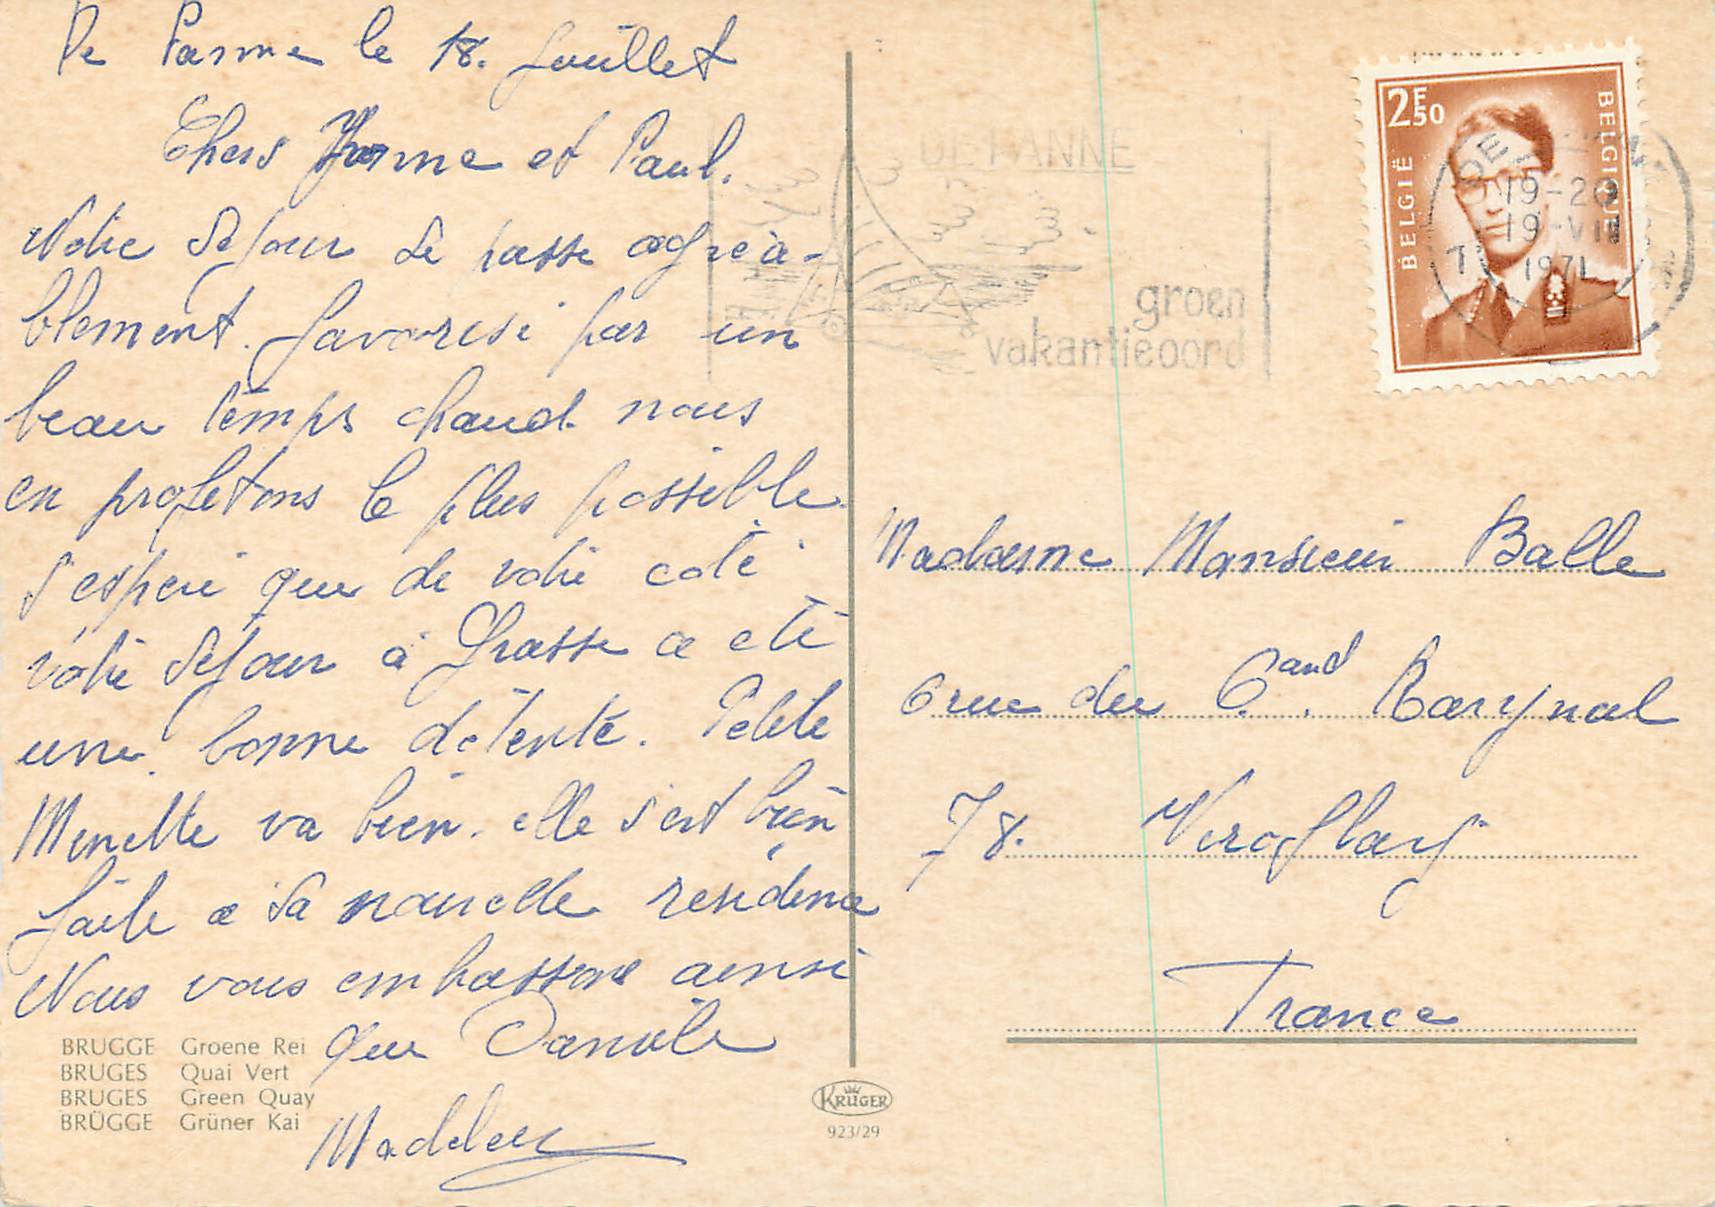 De Panne le 18. Juillet
Chers Yvonne et Paul.
Notre séjour se passe agréa-
blement. favorisé par un
beau temps chaud. nous
en profitons le plus possible.
J'espère que de votre coté
votre séjour à Grasse a été
une bonne détente. Petite
Minette va bien. elle s'est bien
faite a sa nouvelle residence
Nous vous embrassons ainsi
que Daniele
BRUGGE Groene Rei
BRUGES Quai Vert
BRUGES Green Quay
BRÜGGE Grüner Kai
KRÜGER
923/29
DE PANNE
groen
vakantieoord
2F50
BELGIË
BELGIQUE
DE
19-20
19-VII
1971
Madame Monsieur Balle
6 rue du C.and Raynal
78. Viroflay
France